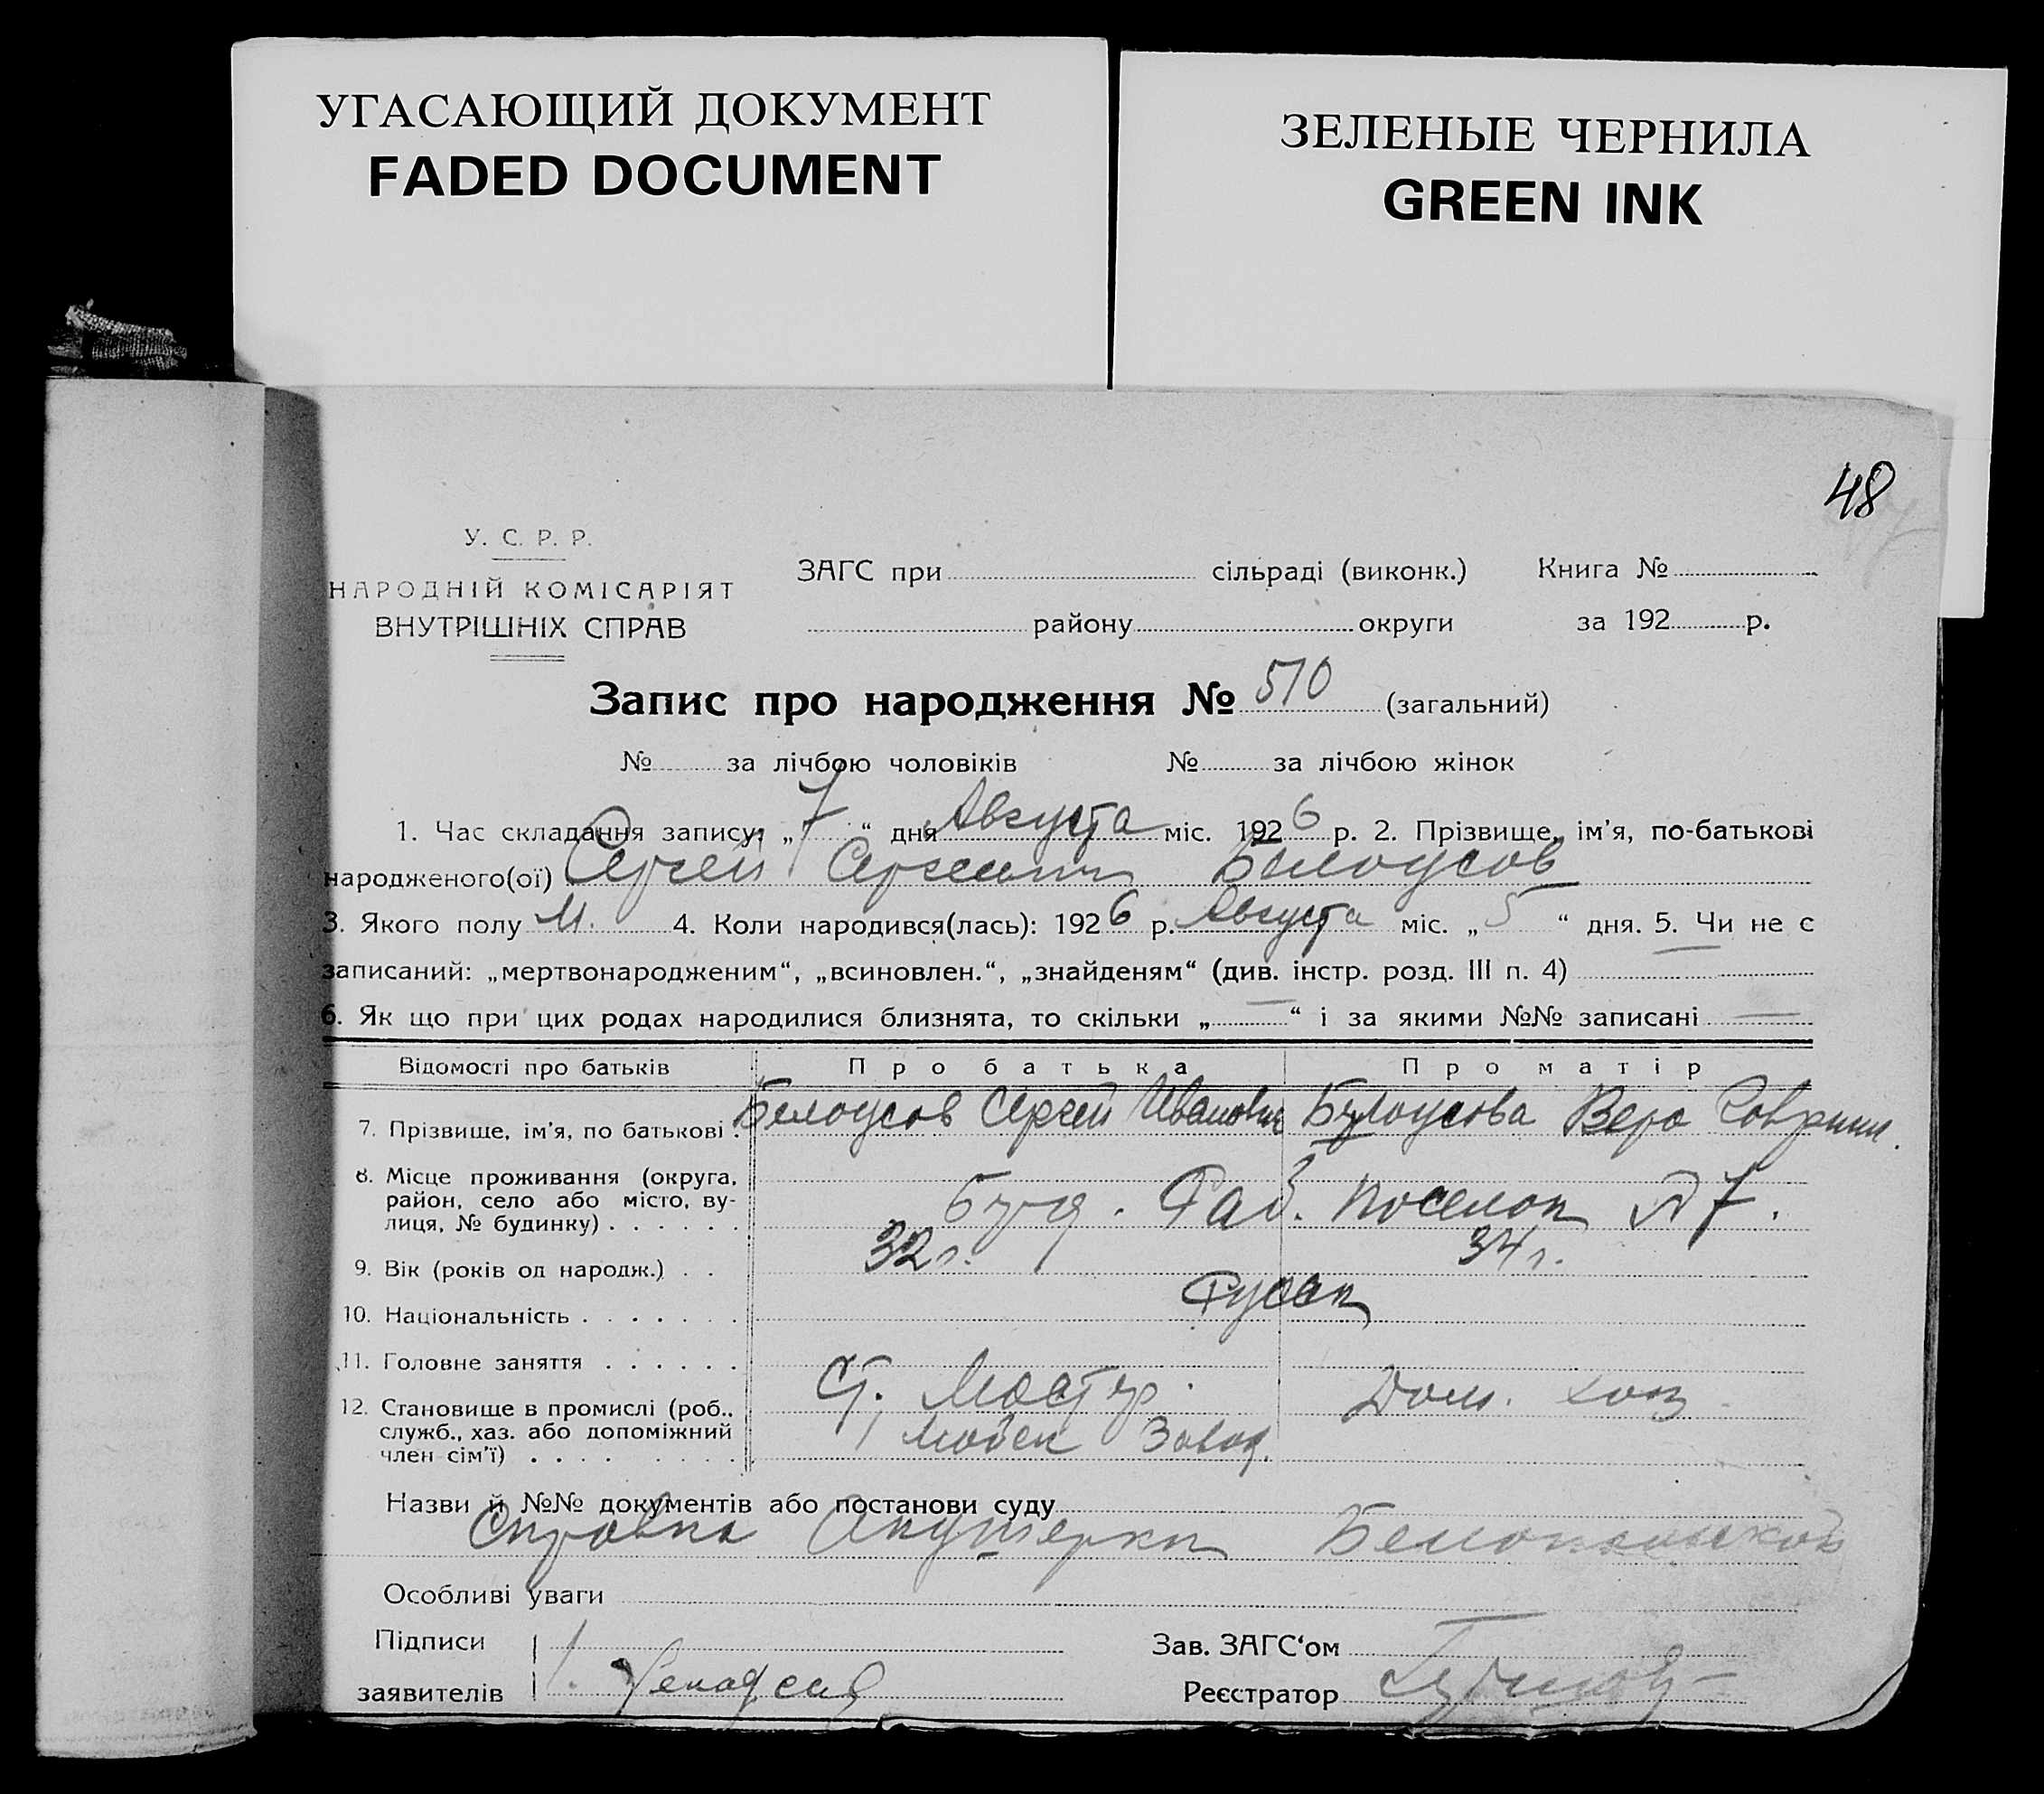 УГАСАЮЩИЙ ДОКУМЕНТ
FADED DOCUMENT
ЗЕЛЕНЫЕ ЧЕРНИЛА
GREEN INK
48
У. С. Р. Р.
НАРОДНІЙ КОМІСАРІЯТ
ВНУТРІШНІХ СПРАВ
ЗАГС при сільраді (виконк.) Книга №
району округи за 192 р.
Запис про народження № 510 (загальний)
№ за лічбою чоловіків № за лічбою жінок
1. Час складання запису: „ 7 “ дня Августа міс. 1926 р. 2. Прізвище, ім'я, по-батькові
народженого(ої) Сергей Сергеевич Белоусов
3. Якого полу М. 4. Коли народився(лась): 1926 р. Августа міс. „ 5 “ дня. 5. Чи не є
записаний: „мертвонародженим“, „всиновлен.“, „знайденям“ (див. інстр. розд. III п. 4) —
6. Як що при цих родах народилися близнята, то скільки „ — “ і за якими №№ записані —
Відомості про батьків Про батька Про матір
7. Прізвище, ім'я, по батькові . Белоусов Сергей Иванович Белоусова Вера
8. Місце проживання (округа,
район, село або місто, ву-
лиця, № будинку) . . . . . . Раб. поселок № 7.
9. Вік (років од народж.) . . 32 г. 34 г.
10. Національність . . . . . . . Русск
11. Головне заняття . . . . . .
Ст. Мастер. Дом. хоз
12. Становище в промислі (роб.,
служб., хаз. або допоміжний
член сім'ї) . . . . . . . . Завод.
Назви й №№ документів або постанови суду
Справка Акушерки
Особливі уваги
Підписи
заявителів
Зав. ЗАГС‘ом
Реєстратор